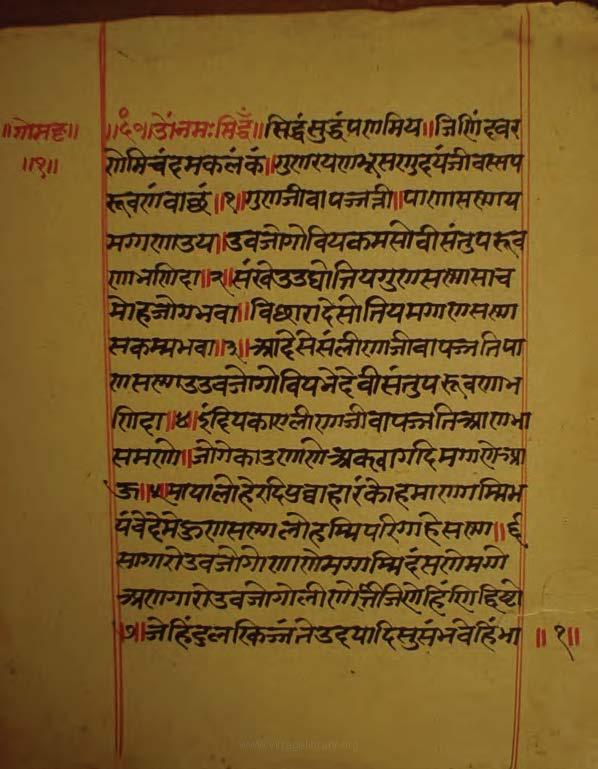 ॥गोमट्ट॥
॥१॥
॥ॐनमःसिद्धं॥सिद्धंसुद्धंपणमिय॥जिणिंदवर
णेमिचंदमकलंकं॥गुणरयणभूसणुदयंजीवस्सप
रूवणंवोछं॥१॥गुणजीवापज्जत्ती॥पाणासण्णाय
मग्गणाउय॥उवओगोवियकमसोवीसंतुपरूव
णाभणिदा॥२॥संखेउउघोत्तियगुणसण्णसाच
मोहजोगभवा॥विछारादेसोत्तियमग्गणसण्ण
सकम्मभवा॥३॥आदेसेसंलीणाजीवापज्जत्तिपा
णसण्णाउउवओगोवियभेदेवीसंतुपरूवणाभ
णिदा॥४॥इंदियकाएलीणाजीवापज्जत्तिआणभा
समणे॥जोगेकाउणाणेअकवागदिमग्गणेआ
ऊ॥५॥मायालोहेरदिपुव्वाहारंकोहमाणगम्मिभ
यंवेदेमेऊणसण्णलोहम्मिपरिग्गहेसण्ण॥६
सागारोउवजोगोणाणेमग्गम्मिदंसणेमग्गे
अणगारोउवजोगोलीणोत्तिजिणेहिंणिद्दिट्ठो
॥७॥जेहिंदुलरकिज्जंतेउदयादिसुसंभवेहिंभा
॥१॥
www.vitragelibrary.org